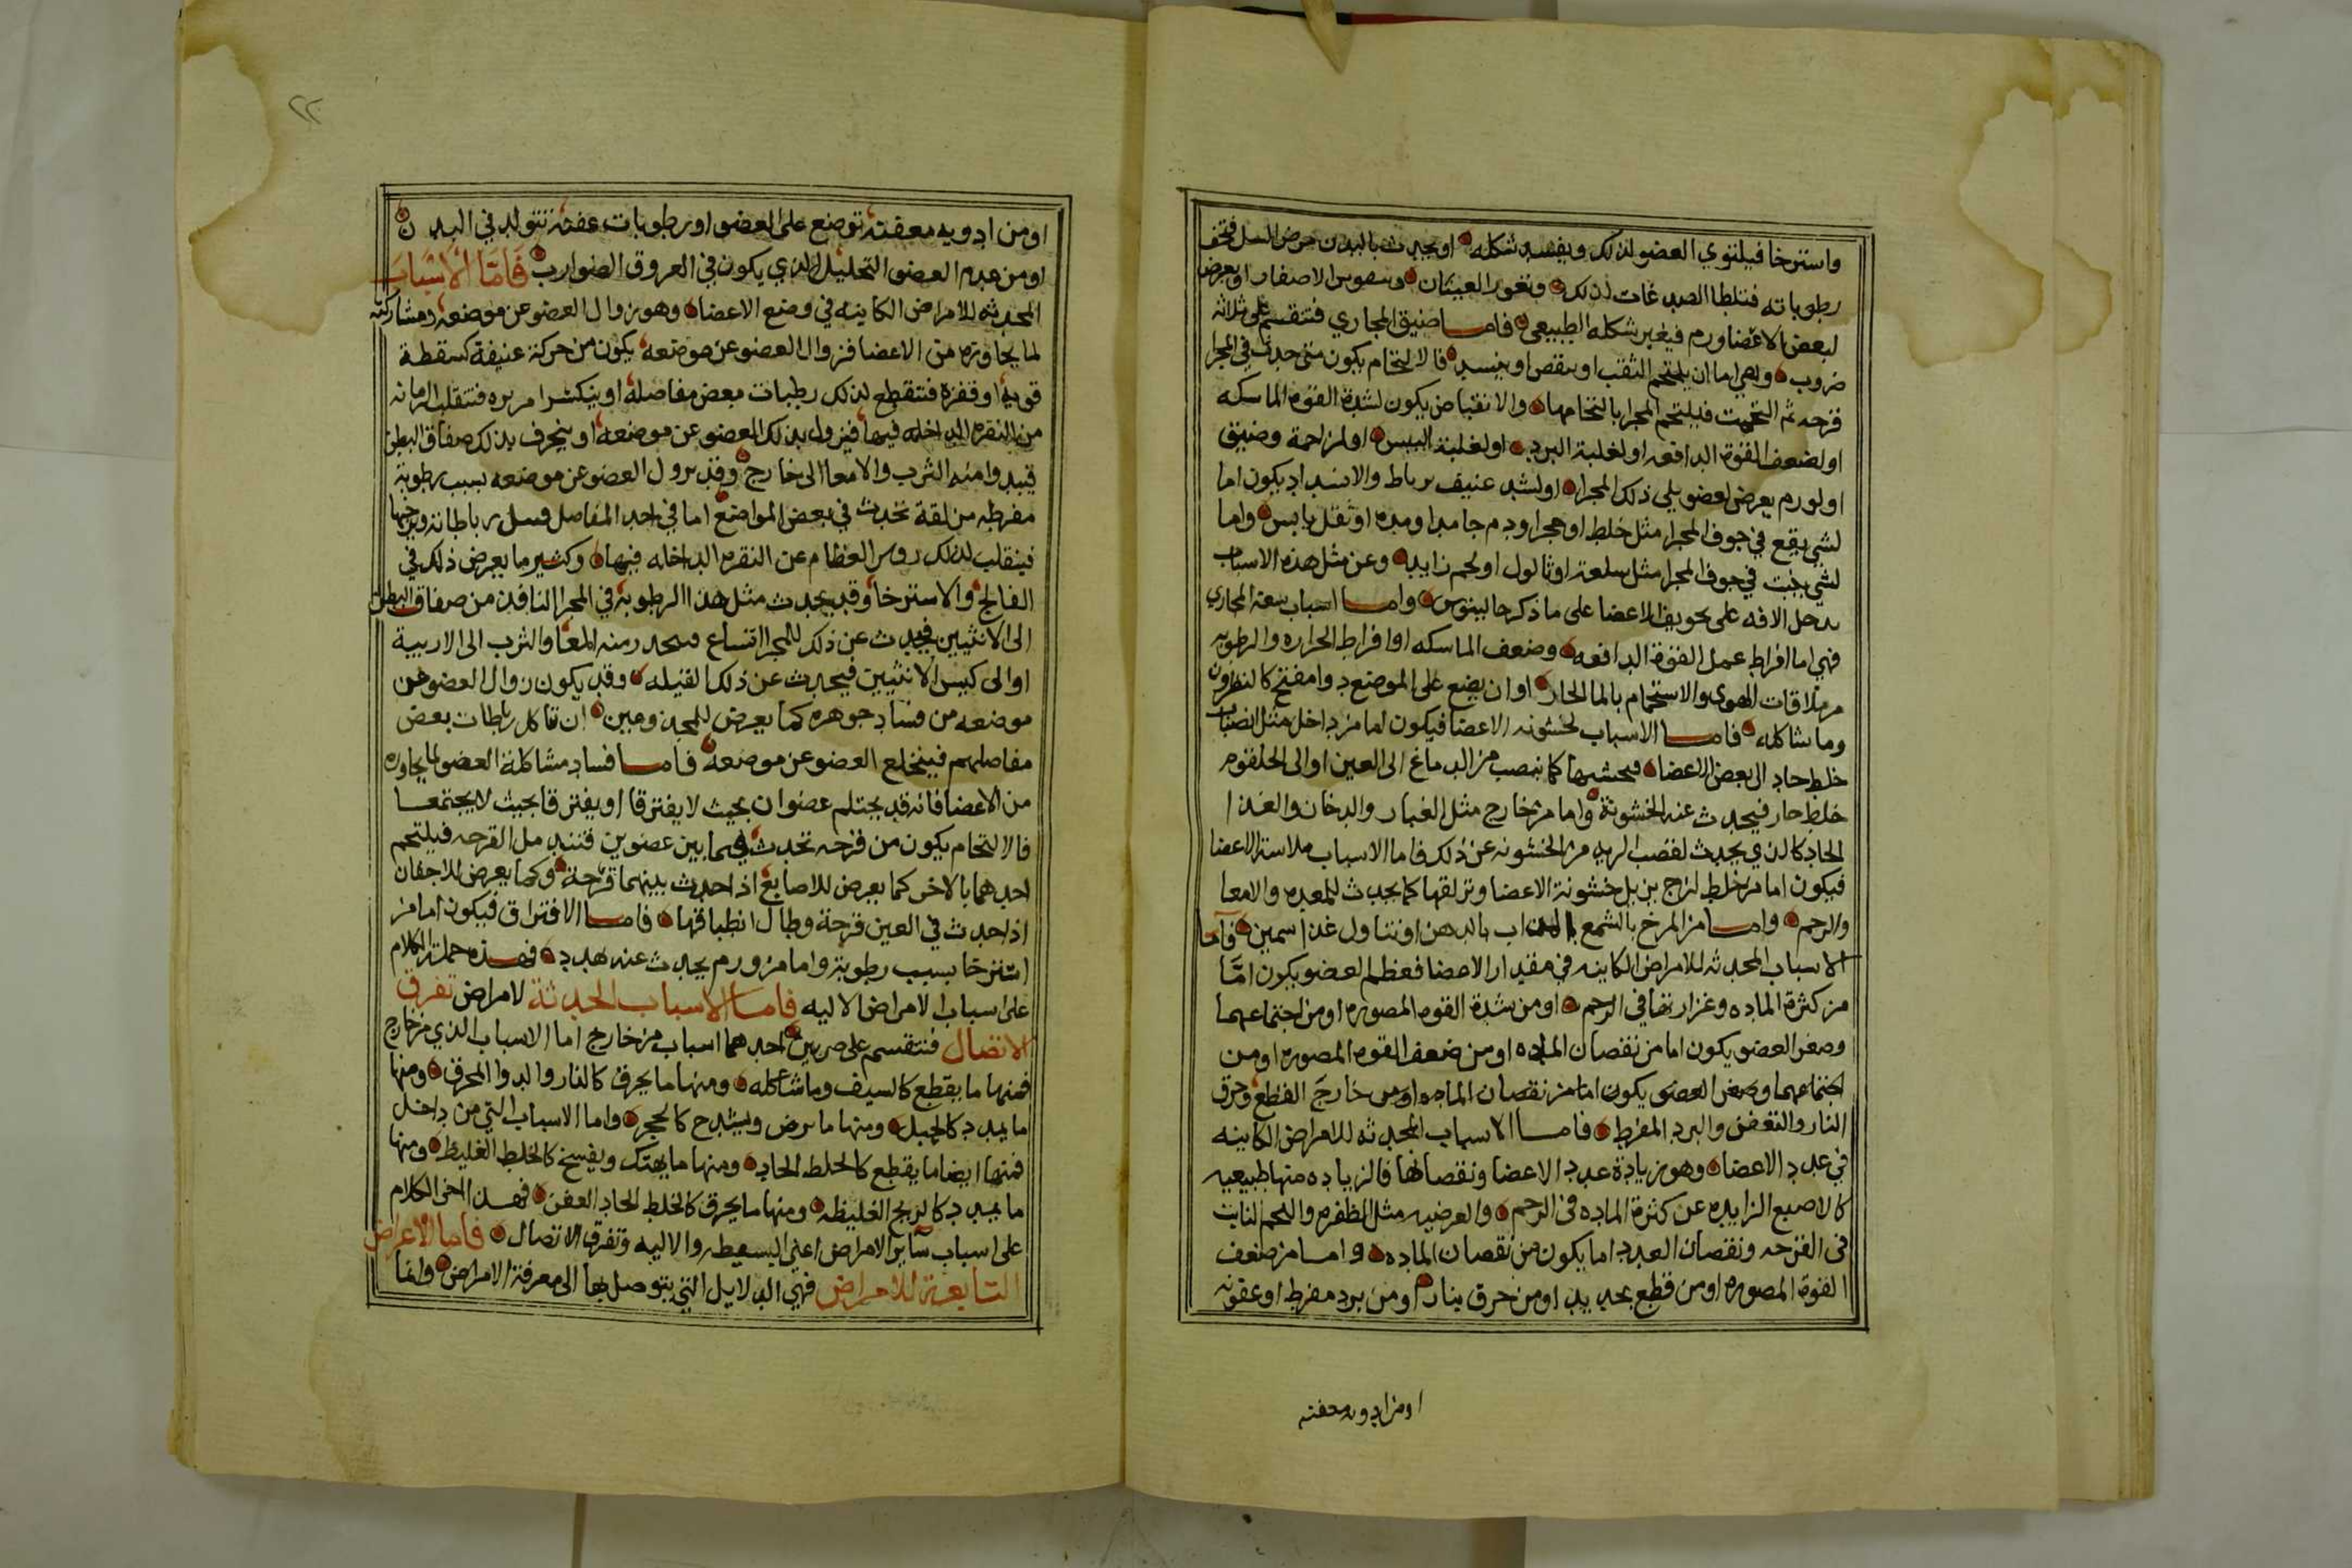 واسترخا فيلتوي العضو لذلك ويفسد شكله او يحدث بالبدن مرض السل فتجف
رطوباته فتلطا الصدغات لذلك وتغور العينان الاصفار او يعرض
لبعض الاعضا ورم فيغير شكله الطبيعي فاما ضيق المجاري فتنقسم على ثلاثة
ضروب وهي اما ان يلتحم الثقب او ينقص او ينسد فالالتحام يكون متى حدث في المجرا
قرحه ثم التحمت فيلتحم المجرا بالتحامها والانقباض يكون لشدة القوة الماسكه
او لضعف القوة الدافعه او لغلبة البرد او لغلبة اليبس او لمزاحمة وضيق
او لورم يعرض لعضو يلي ذلك المجرا او لشد عنيف برباط والانسداد يكون اما
لشي يقع في جوف المجرا مثل خلط او حجر او دم جامد او مده او ثقل يابس واما
لشي ينبت في جوف المجرا مثل سلعة او ثالول او لحم زايد وعن مثل هذه الاسباب
تدخل الافه على تجويف الاعضا على ما ذكر جالينوس واما اسباب سعة المجاري
فهي اما افراط عمل القوة الدافعه وضعف الماسكه او افراط الحراره والرطوبه
من ملاقات الهوي والاستحمام بالما الحار او ان يضع على الموضع دوا مفتح كالنطرون
وما شاكله فاما الاسباب لخشونه الاعضا فيكون اما من داخل مثل انصباب
خلط حاد الى بعض الاعضا فيخشنها كما ينصب من الدماغ الى العين او الى الحلقوم
خلط حار فيحدث عنه الخشونة واما من خارج مثل الغبار والدخان والغذا
الحاد كالذي يحدث لقصب الريه من الخشونه عن ذلك فاما الاسباب ملاسة الاعضا
فيكون اما من خلط لزج يزيل خشونة الاعضا ويزلقها كما يحدث للمعده والامعا
والرحم واما من المرخ بالشمع المذاب بالدهن او تناول غذا سمين واما
الاسباب المحدثه للامراض الكاينه في مقدار الاعضا فعظم العضو يكون امّا
من كثرة الماده وغزارتها في الرحم او من شدة القوه المصوره او من اجتماعهما
وصغر العضو يكون اما من نقصان الماده او من ضعف القوه المصوره او من
اجتماعهما وصغر العضو يكون اما من نقصان الماده او من خارج القطع وحرق
النار والتعفن والبرد المفرط فاما الاسباب المحدثه للامراض الكاينه
في عدد الاعضا وهو زيادة عدد الاعضا ونقصانها فالزياده منها طبيعيه
كالاصبع الزايده عن كثرة الماده في الرحم والعرضيه مثل الظفره واللحم النابت
في القرحه ونقصان العدد اما يكون من نقصان الماده واما من ضعف
القوة المصوره او من قطع بحديد او من حرق بنار او من برد مفرط او عفونه
او من ادويه معفنه
٢٢
او من ادويه معفنة توضع على العضو او رطوبات عفنة تتولد في البدن
او من عدم العضو التحليل الذي يكون في العروق الضوارب فَامّا الاسْبَابَ
المحدثه للامراض الكاينه في وضع الاعضا وهو زوال العضو عن موضعه ومشاركته
لما يجاوره من الاعضا فزوال العضو عن موضعه يكون من حركة عنيفة كسقطة
قوية او قفزة فتنقطع لذلك رطبات بعض مفاصله او ينكسر امر يره فتنقلب الرمانه
من النقره الداخله فيها فيزول بذلك العضو عن موضعه او ينخرق بذلك صفاق البطن
فيبدوا منه الثرب والامعا الى خارج وقد يزول العضو عن موضعه بسبب رطوبة
مفرطه مزلقة تحدث في بعض المواضع اما في احد المفاصل فتبل رباطاته ويرخيها
فينقلب لذلك روس العظام عن النقره الداخله فيها وكثير ما يعرض ذلك في
الفالج والاسترخا وقد يحدث مثل هذا الرطوبة في المجرا النافذ من صفاق البطن
الى الانثيين فيحدث عن ذلك للمجرا اتساع فينحدر منه المعا والثرب الى الاربية
او الى كيس الانثيين فيحدث عن ذلك القيله وقد يكون زوال العضو عن
موضعه من فساد جوهره كما يعرض للمجذومين ان تتاكل رباطات بعض
مفاصلهم فينخلع العضو عن موضعه فاما فساد مشاكلة العضو لما يجاوره
من الاعضا فانه قد يجتلم عضوان بحيث لا يفترقا او يفترقا بحيث لا يجتمعا
فالالتحام يكون من قرحه تحدث فيما بين عضوين فتندمل القرحه فيلتحم
احدهما بالاخر كما يعرض للاصابع اذا حدث بينهما قرحة وكما يعرض للاجفان
اذا حدث في العين قرحة وطال انطباقها فاما الافتراق فيكون اما من
استرخا بسبب رطوبة واما من ورم يحدث عنه تمدد فهذه جملة الكلام
على اسباب الامراض الاليه فاما الاسباب المحدثة لامراض تفرق
الاتصال فتنقسم على ضربين احدهما اسباب من خارج اما الاسباب الذي من خارج
فمنها ما يقطع كالسيف وما شاكله ومنها ما يحرق كالنار والدوا المحرق ومنها
ما يمدد كالحبل ومنها ما يرض ويشدخ كالحجر واما الاسباب التي من داخل
فمنها ايضا ما يقطع كالخلط الحاد ومنها ما يهتك ويفسخ كالخلط الغليظ ومنها
ما يمدد كالريح الغليظه ومنها ما يحرق كالخلط الحاد العفن فهذا الكلام
على اسباب سآير الامراض اعني البسيطه والاليه وتفرق الاتصال فاما الاعراض
التابعة للامراض فهي الدلايل التي يتوصل بها الى معرفة الامراض وانما